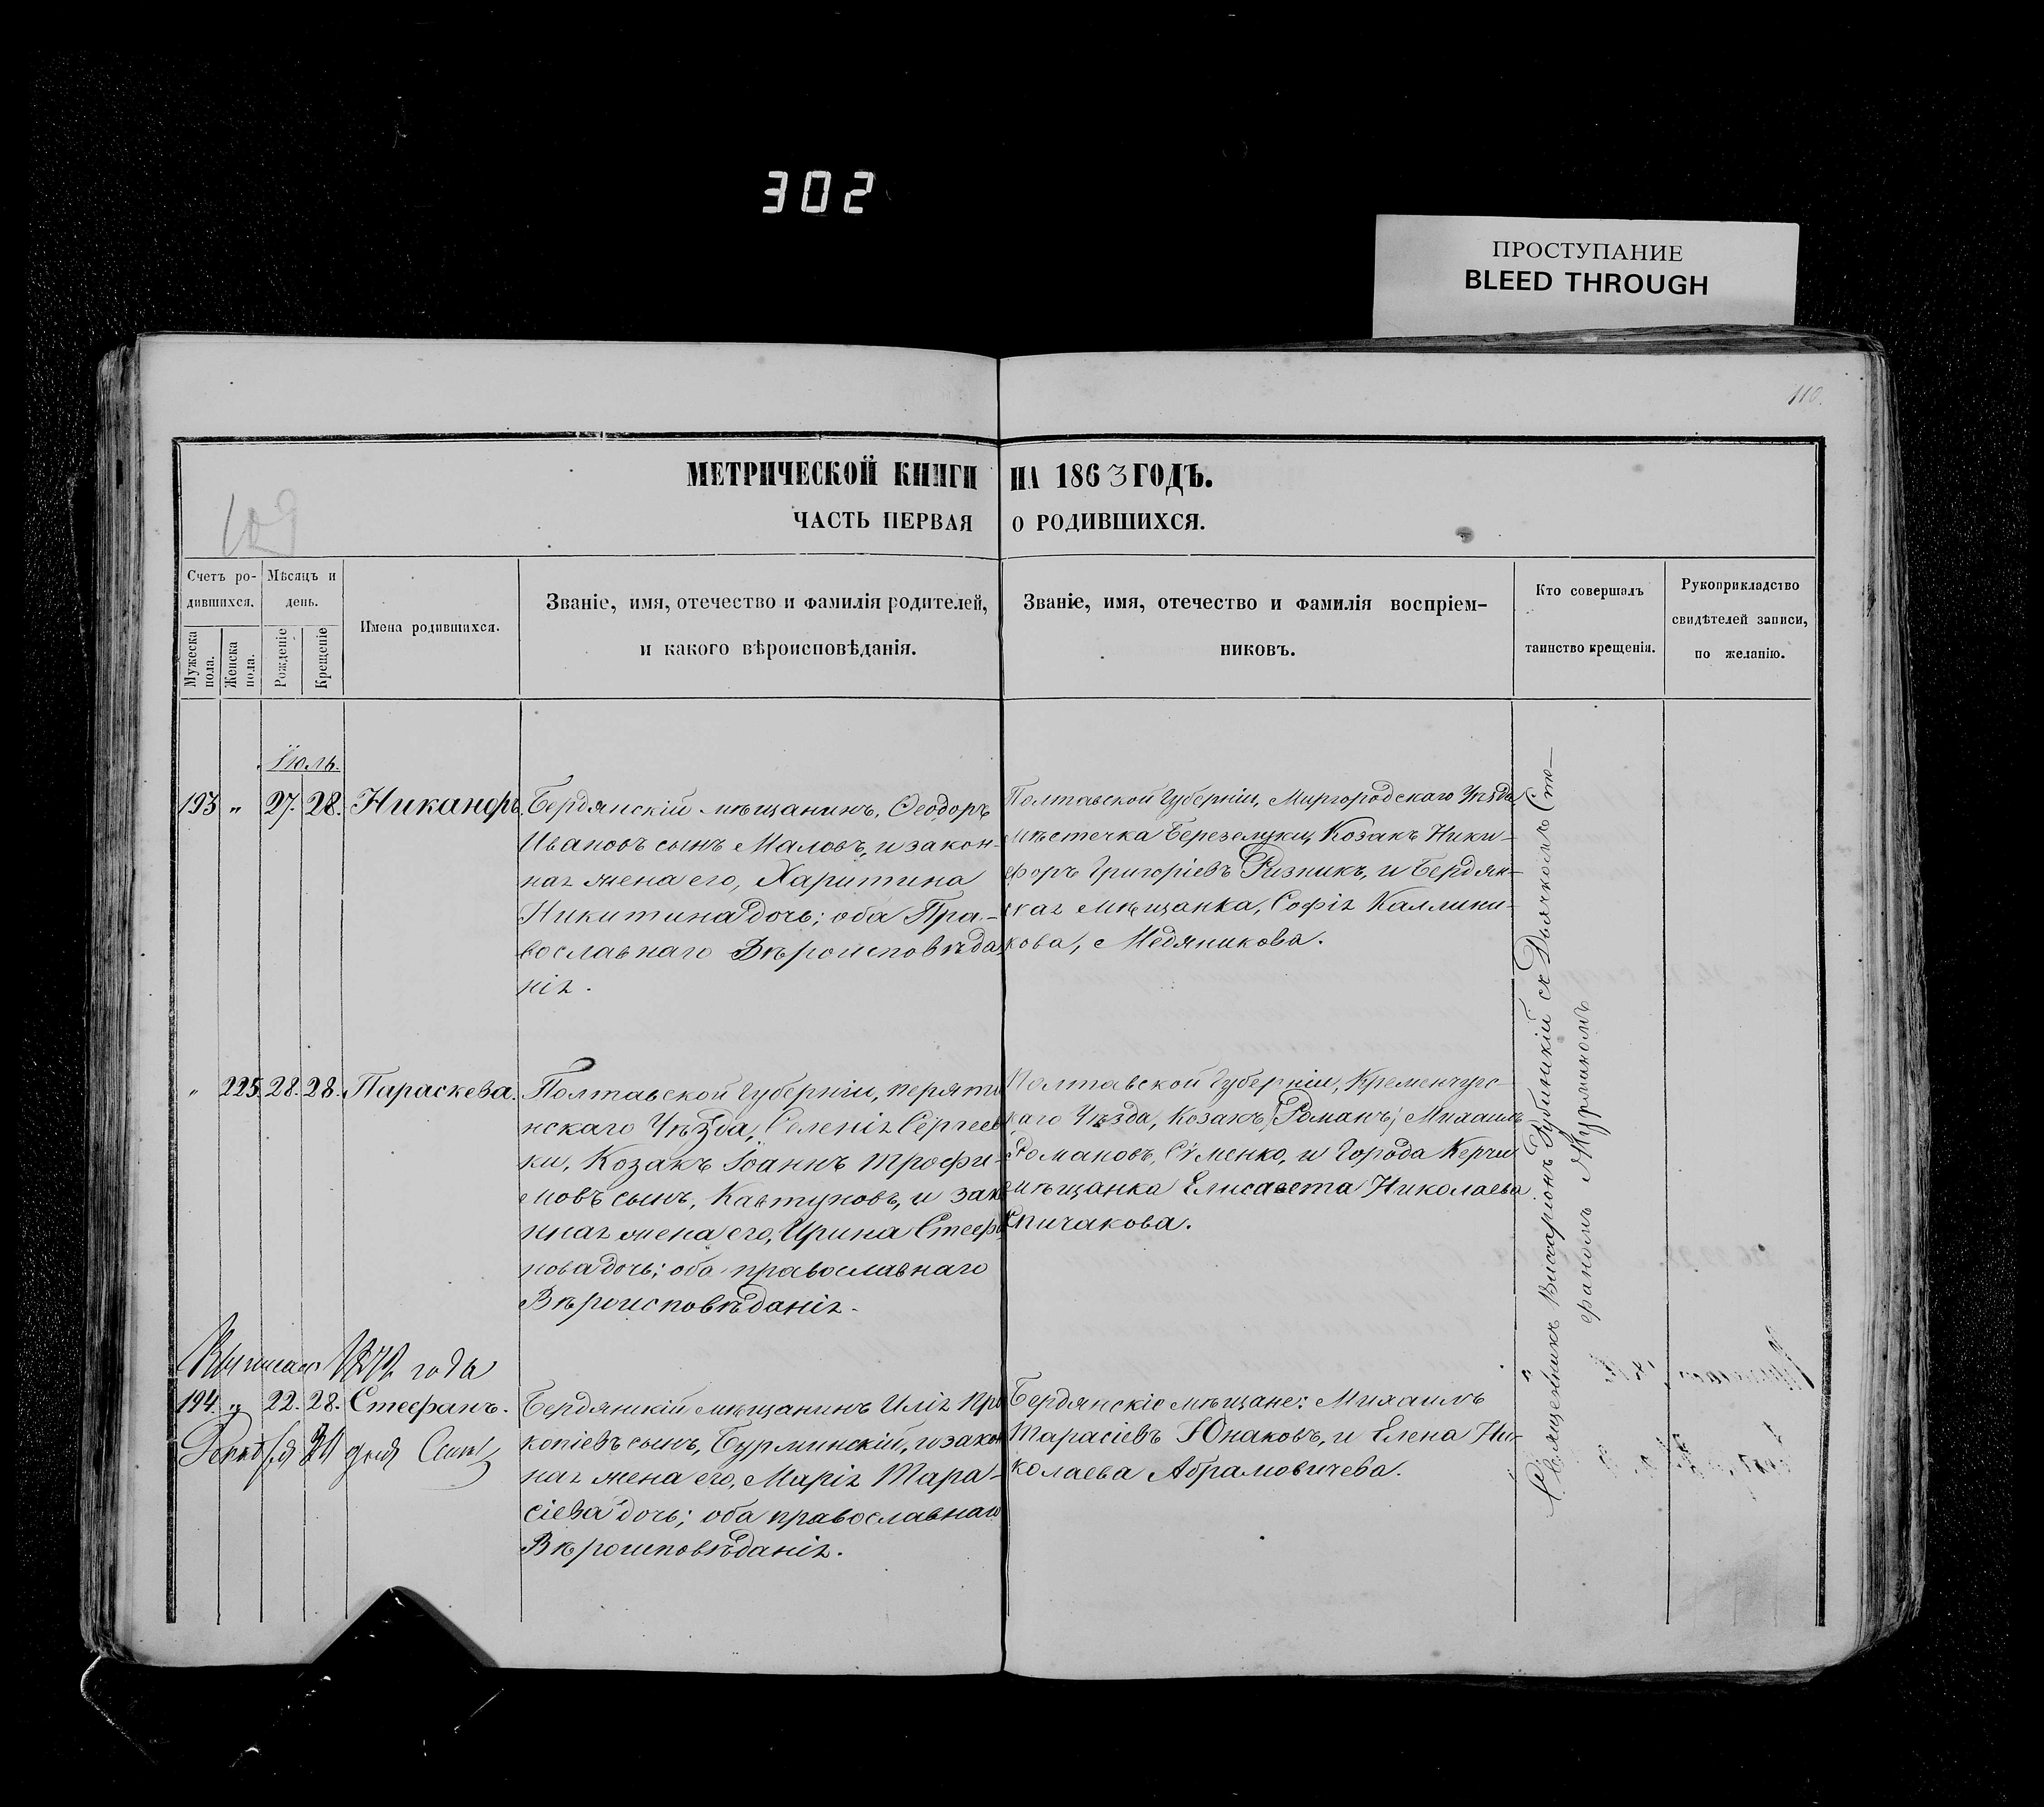 302
ПРОСТУПАНИЕ
BLEED THROUGH
110.
109
МЕТРИЧЕСКОЙ КНИГИ НА 1863 ГОДЪ.
ЧАСТЬ ПЕРВАЯ О РОДИВШИХСЯ.
Счетъ ро-
дившихся.
Мужеска
пола.
Женска
пола.
Мѣсяцъ и
день.
Рожденіе
Крещеніе
Имена родившихся.
Званіе, имя, отечество и фамилія родителей,
и какого вѣроисповѣданія.
Званіе, имя, отечество и фамилія воспріем-
никовъ.
Кто совершалъ
таинство крещенія.
Рукоприкладство
свидѣтелей записи,
по желанію.
Іюль.
193 „ 27. 28. Никанфръ.
Бердянскій мѣщанинъ, Ѳеодоръ
Ивановъ сынъ Маловъ, и закон-
ная жена его, Харитина
Никитина дочь; оба Пра-
вославнаго Вѣроисповѣда
нія.
Полтавской Губерніи, Миргородскаго Уѣзда
мѣстечка Березелуки, Козакъ Ники-
форъ Григоріевъ Ризникъ, и Бердян-
ская мѣщанка, Софія Каллини-
кова, Медяникова.
„ 225. 28. 28. Параскева.
Полтавской Губерніи, перяти
нскаго Уѣзда, Селенія Сергеев
ки, Козакъ Іоаннъ Трофи-
мовъ сынъ, Кавтуновъ, и зак
нная жена его, Ирина Стеф
нова дочь; оба православнаго
Вѣроисповѣданія.
Полтавской Губерніи, Кременчугс-
каго Уѣзда, Козакъ, Романъ, Михаилъ
Романовъ, Сѣменко, и Города Керчи
мѣщанка Елисавета Николаева
Спичакова.
года
194 „ 22. 28. Стефанъ.
дня
Бердянскій мѣщанинъ Илія Про
копіевъ сынъ, Бурминскій, и закон
ная жена его, Марія Тара-
сіева дочь; оба православнаго
Вѣроисповѣданія.
Бердянскіе мѣщане: Михаилъ
Тарасіевъ Юнаковъ, и Елена Ни-
колаева Абрамовичева.
Священникъ Виссаріонъ Рубинскій съ Дьячкомъ Сте-
фаномъ Журманомъ